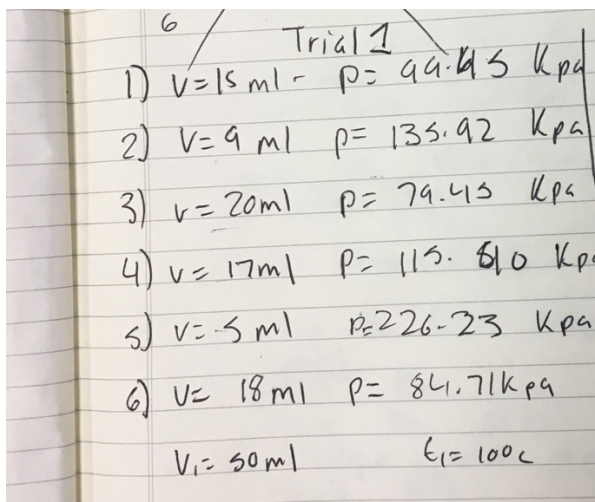 6
Trial 1
1) V=15 ml - P= 99.45 Kpa
2) V=9 ml P= 135.92 Kpa
3) V=20ml P= 79.45 Kpa
4) V=17ml P= 115.810 Kpa
5) V=5 ml P=226.23 Kpa
6) V= 18ml P= 84.71Kpa
V1=50ml t1=100c